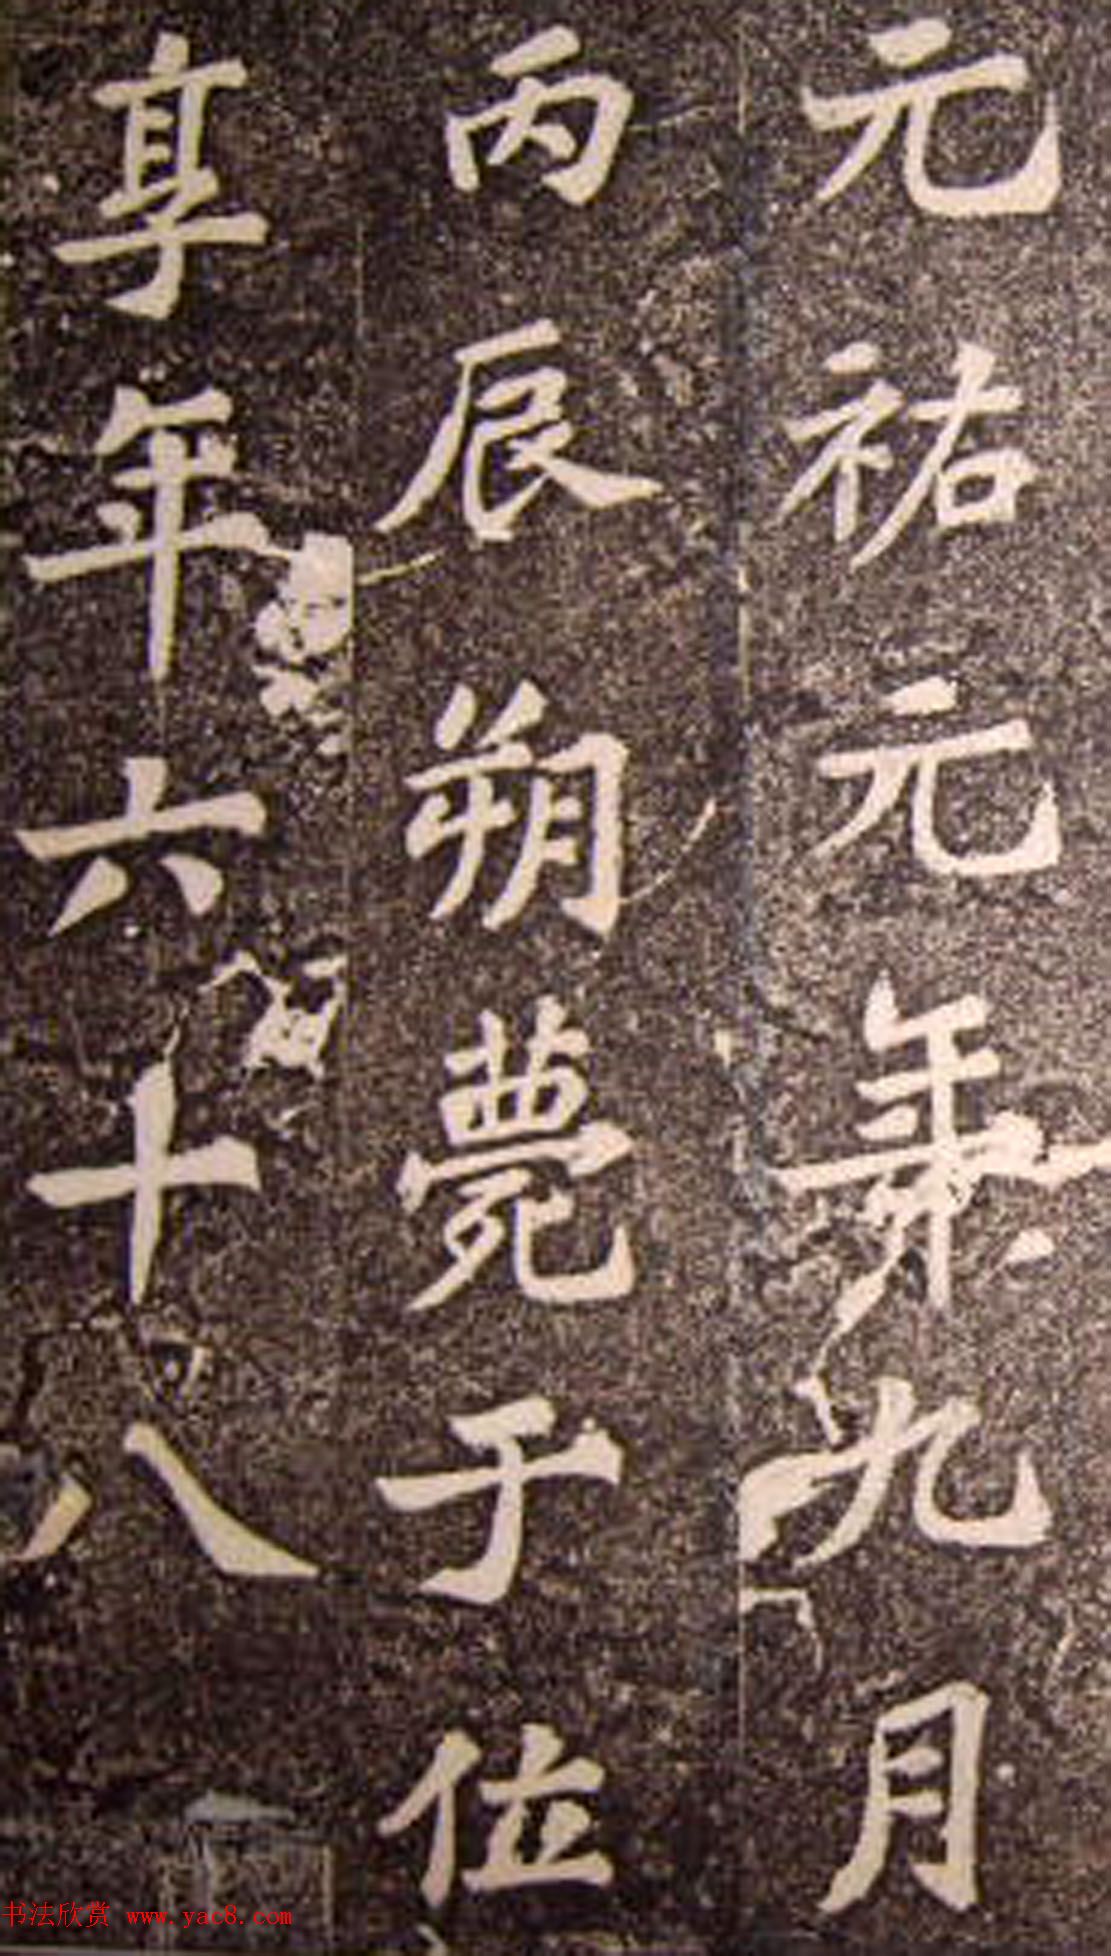 元祐元年九月
丙辰朔薨于位
享年六十八
书法欣赏 www.yac8.com